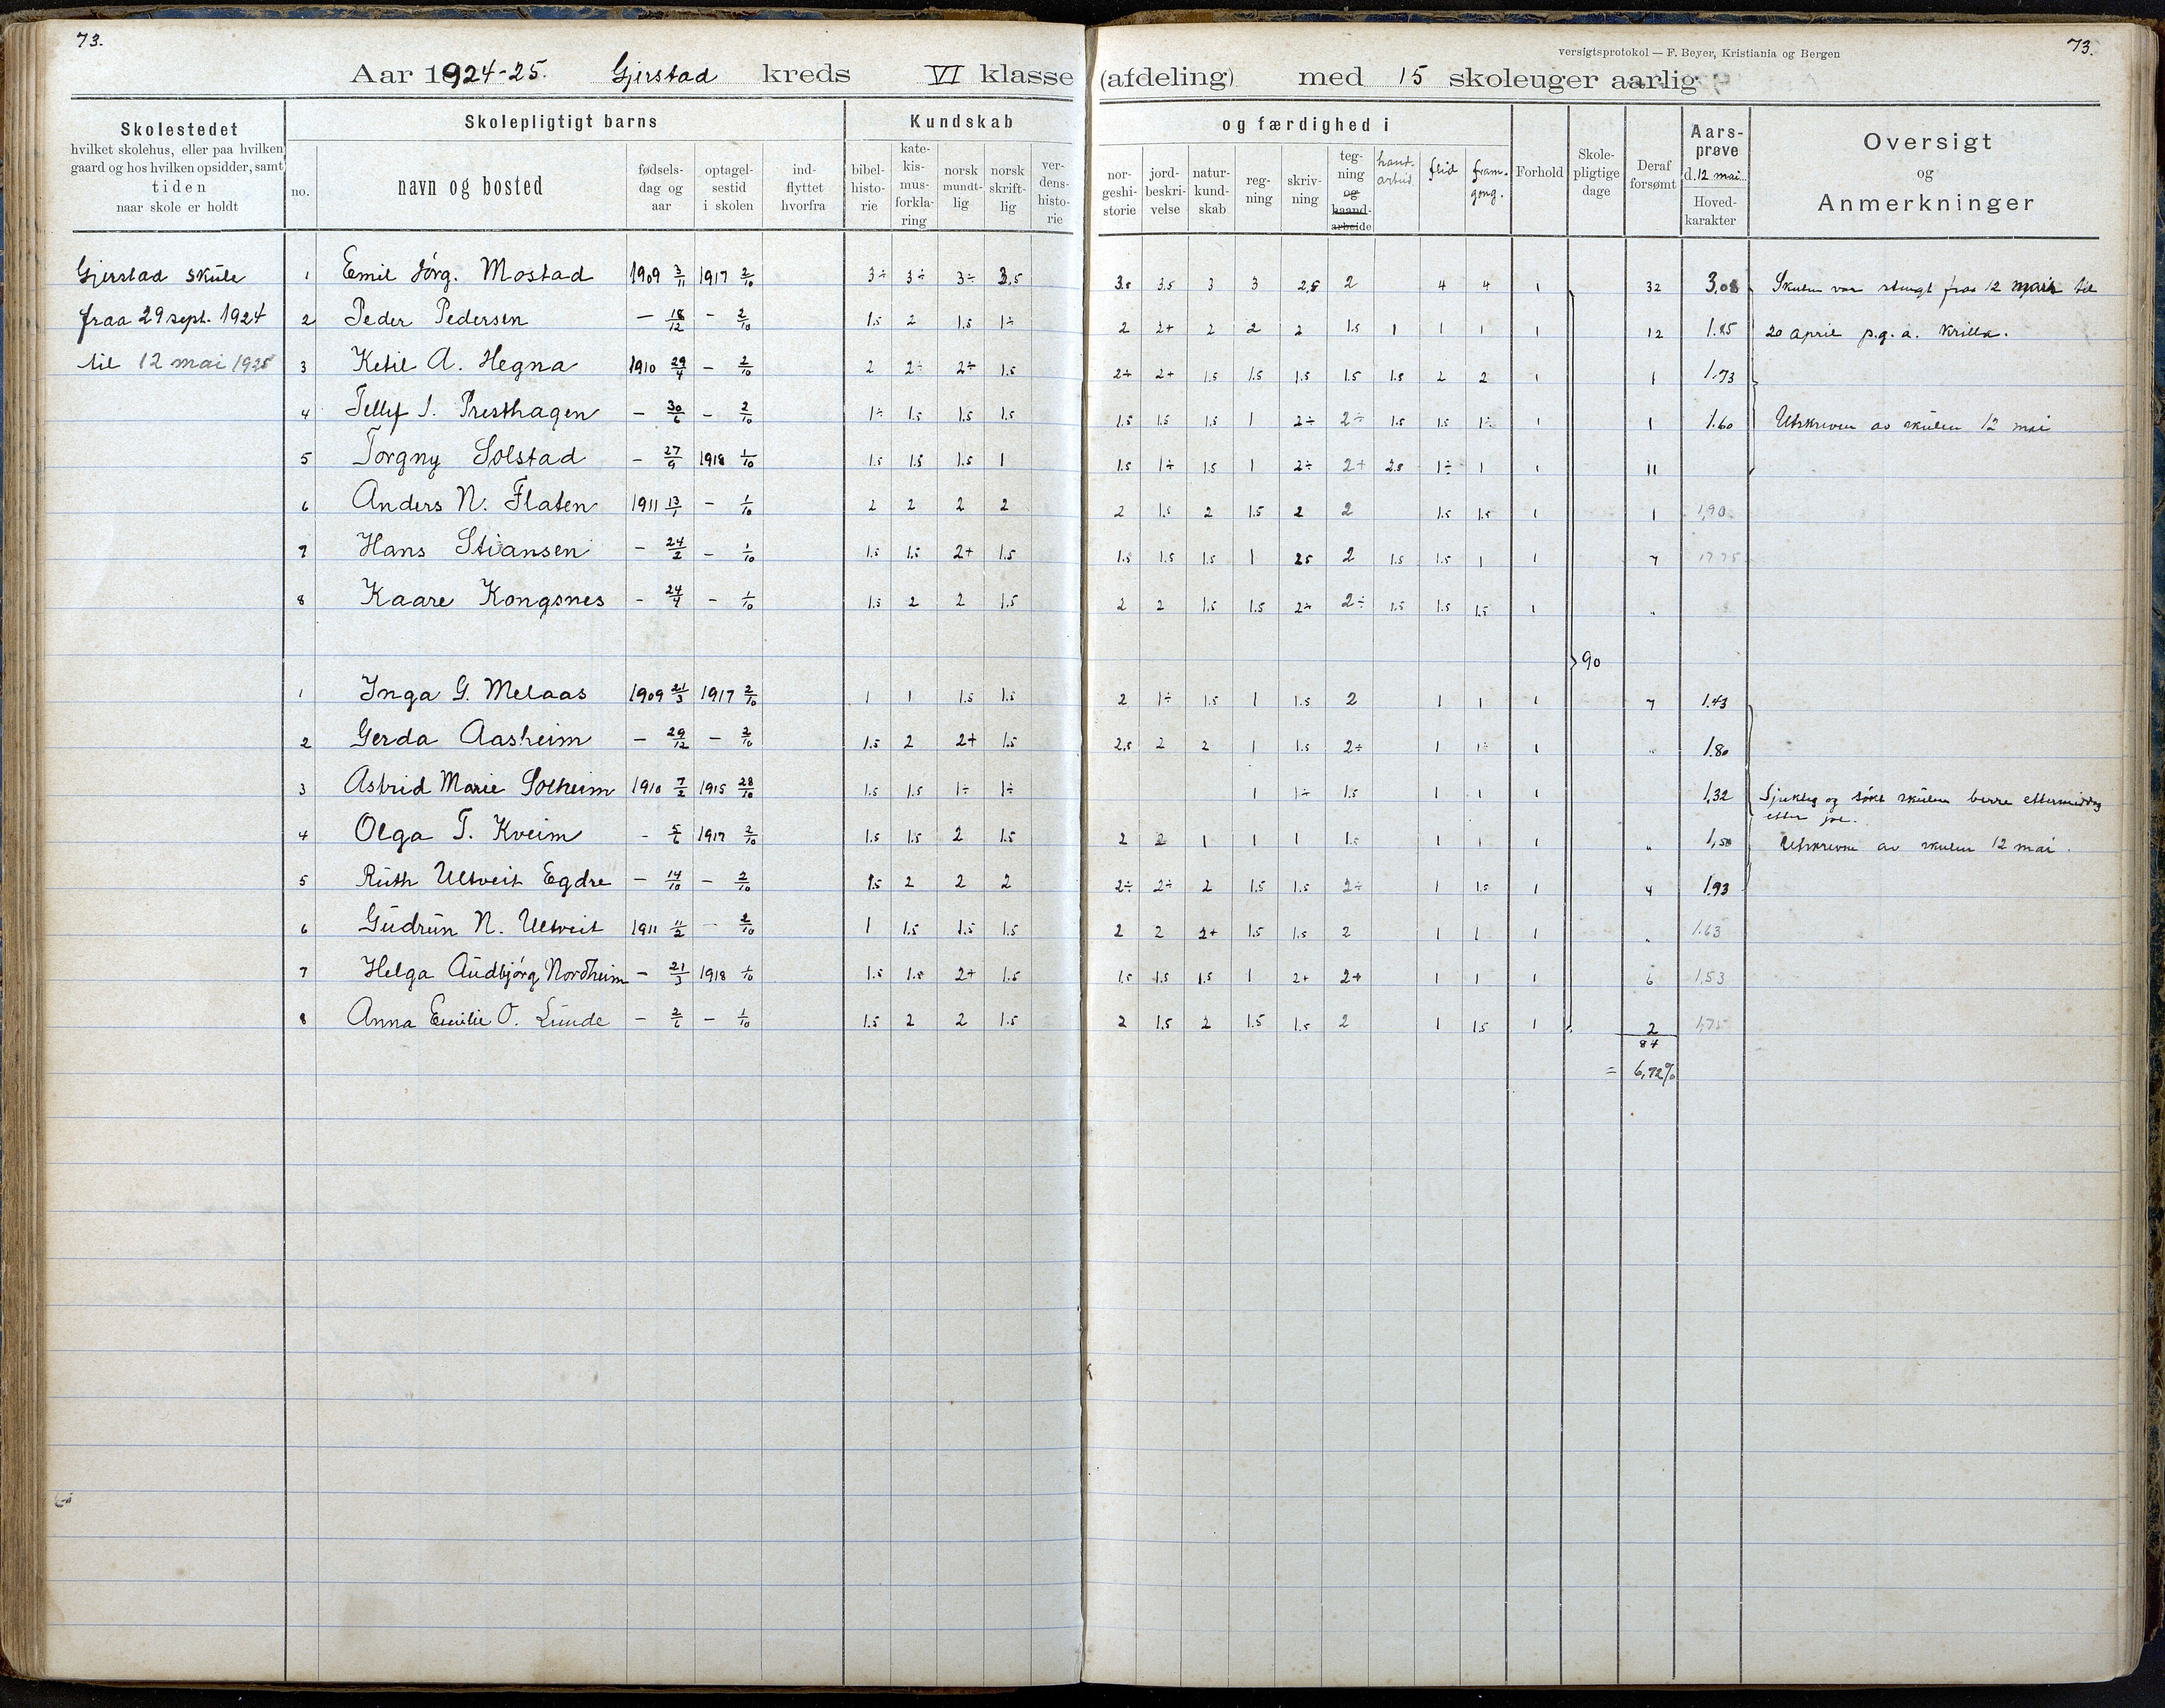 73.
versigtsprotokol — F. Beyer, Kristiania og Bergen
73.
Aar 1924-25. Gjerstad kreds VI klasse (afdeling) med 15 skoleuger aarlig
Skolestedet
hvilket skolehus, eller paa hvilken
gaard og hos hvilken opsidder, samt
tiden
naar skole er holdt
Skolepligtigt barns
no.
navn og bosted
fødsels-
dag og
aar
optagel-
sestid
i skolen
ind-
flyttet
hvorfra
Kundskab
bibel-
histo-
rie
kate-
kis-
mus-
forkla-
ring
norsk
mundt-
lig
norsk
skrift-
lig
ver-
dens-
histo-
rie
og færdighed i
nor-
geshi-
storie
jord-
beskri-
velse
natur-
kund-
skab
reg-
ning
skriv-
ning
teg-
ning
og
haand-
arbeide
hant-
arbeid
flid
fram-
gong.
Forhold
Skole-
pligtige
dage
Deraf
forsømt
Aars-
prøve
d. 12 mai
Hoved-
karakter
Oversigt
og
Anmerkninger
Gjerstad skúle
fraa 29 sept. 1924
til 12 mai 1925
1 Emil Jörg. Mostad 1909 3/11 1917 2/10 3÷ 3÷ 3÷ 3,5 3.5 3.5 3 3 2,5 2 4 4 1 32 3,08 Skulen var stengt fraa 12 mars til
2 Peder Pedersen – 18/12 – 2/10 1.5 2 1.5 1÷ 2 2+ 2 2 2 1.5 1 1 1 1 12 1.85 20 april p.g.a. krilla.
3 Ketil A. Hegna 1910 29/4 – 2/10 2 2÷ 2÷ 1.5 2÷ 2+ 1.5 1.5 1.5 1.5 1.5 2 2 1 1 1.73
4 Tellef J. Presthagen – 30/6 – 2/10 1÷ 1.5 1.5 1.5 1.5 1.5 1.5 1 2÷ 2÷ 1.5 1.5 1÷ 1 1 1.60 Utskreven av skúlen 12 mai
5 Torgny Solstad – 27/9 1918 1/10 1.5 1.5 1.5 1 1.5 1÷ 1.5 1 2÷ 2+ 2.5 1÷ 1 1 11
6 Anders N. Flaten 1911 13/1 – 1/10 2 2 2 2 2 1.5 2 1.5 2 2 1.5 1.5 1 1 1,90
7 Hans Stiansen – 24/2 – 1/10 1.5 1.5 2+ 1.5 1.5 1.5 1.5 1 2.5 2 1.5 1.5 1 1 7
8 Kaare Kongsnes – 24/4 – 1/10 1.5 2 2 1.5 2 2 1.5 1.5 2÷ 2÷ 1.5 1.5 1.5 1 „
90
1 Inga G. Melaas 1909 21/3 1917 2/10 1 1 1.5 1.5 2 1÷ 1.5 1 1.5 2 1 1 1 7 1.43
2 Gerda Aasheim – 29/12 – 2/10 1.5 2 2+ 1.5 2,5 2 2 1 1.5 2÷ 1 1÷ 1 „ 1.80
3 Astrid Marie Solheim 1910 7/2 1915 28/10 1.5 1.5 1÷ 1÷ 1 1÷ 1.5 1 1 1 1,32 Sjukleg og søkt skúlen berre ettermiddag
etter jol.
4 Olga T. Kveim – 5/6 1917 2/10 1.5 1.5 2 1.5 2 2 1 1 1 1.5 1 1 1 „ 1,50 Utskrevne av skulen 12 mai.
5 Rúth Ultveit Egdre – 14/10 – 2/10 1.5 2 2 2 2÷ 2÷ 2 1.5 1.5 2÷ 1 1.5 1 4 1.93
6 Gúdrún N. Ultveit 1911 11/2 – 2/10 1 1.5 1.5 1.5 2 2 2+ 1.5 1.5 2 1 1 1 „ 1.63
7 Helga Aúdbjórg Nordheim – 21/3 1918 1/10 1.5 1.5 2+ 1.5 1.5 1.5 1.5 1 2+ 2+ 1 1 1 6 1,53
8 Anna Emilie O. Lúnde – 2/6 – 1/10 1.5 2 2 1.5 2 1.5 2 1.5 1.5 2 1 1.5 1 2 1,75
84
= 6,72%